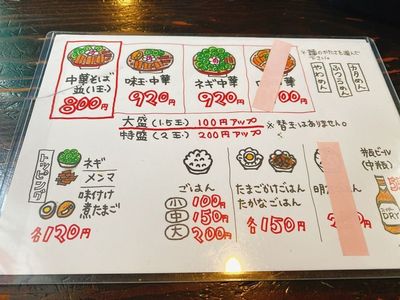 中華そば
並(1玉)
800円
味玉中華
920円
ネギ中華
920円
円
※麺のかたさを選んで下さい。
かためん
ふつうめん
やわめん
大盛(1.5玉) 100円アップ
特盛(2玉) 200円アップ
※替玉はありません。
トッピング
ネギ
メンマ
味付け
煮たまご
各120円
ごはん
小 100円
中 150円
大 200円
たまごかけごはん
たかなごはん
各150円
明
ごはん
円
瓶ビール
(中瓶)
DRY